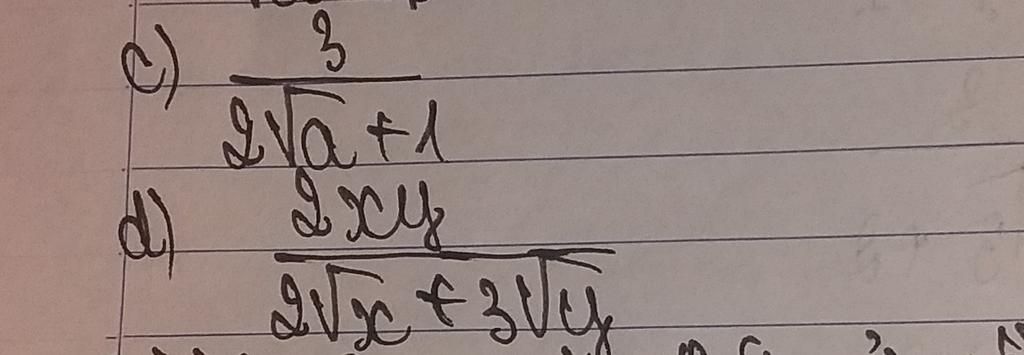 c) 3
2√a + 1
d) 2xy
2√x + 3√y